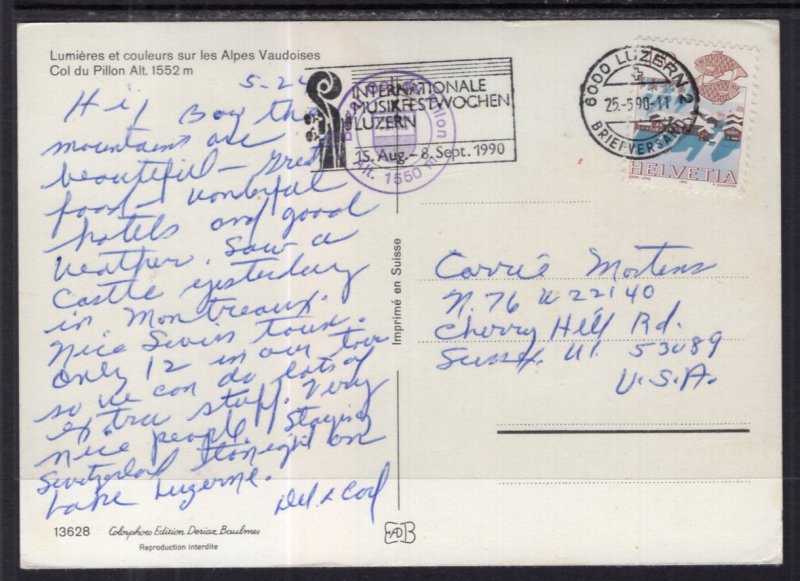 Lumières et couleurs sur les Alpes Vaudoises
Col du Pillon Alt. 1552 m
5-24
Hi! Boy the
mountains are
beautiful - Great
food - wonderful
hotels and good
weather. Saw a
Castle yesterday
in Montreaux.
Nice Swiss tour.
Only 12 in our tour
so we can do lots of
extra stuff. Very
nice people. Staying
Switzerland tonight on
Lake Luzerne.
Del &
13628
Colorphoto Edition Deriaz Baulmes
Reproduction interdite
INTERNATIONALE
MUSIKFESTWOCHEN
LUZERN
15. Aug. - 8. Sept. 1990
Pillon
Alt. 1550 m
6000 LUZERN 2
25.-5.90-11
BRIEFVERSAND
HELVETIA
Imprimé en Suisse
Carrie Mortens
N 76 W 22140
Cherry Hill Rd.
Sussex WI. 53089
U.S.A.
EADB